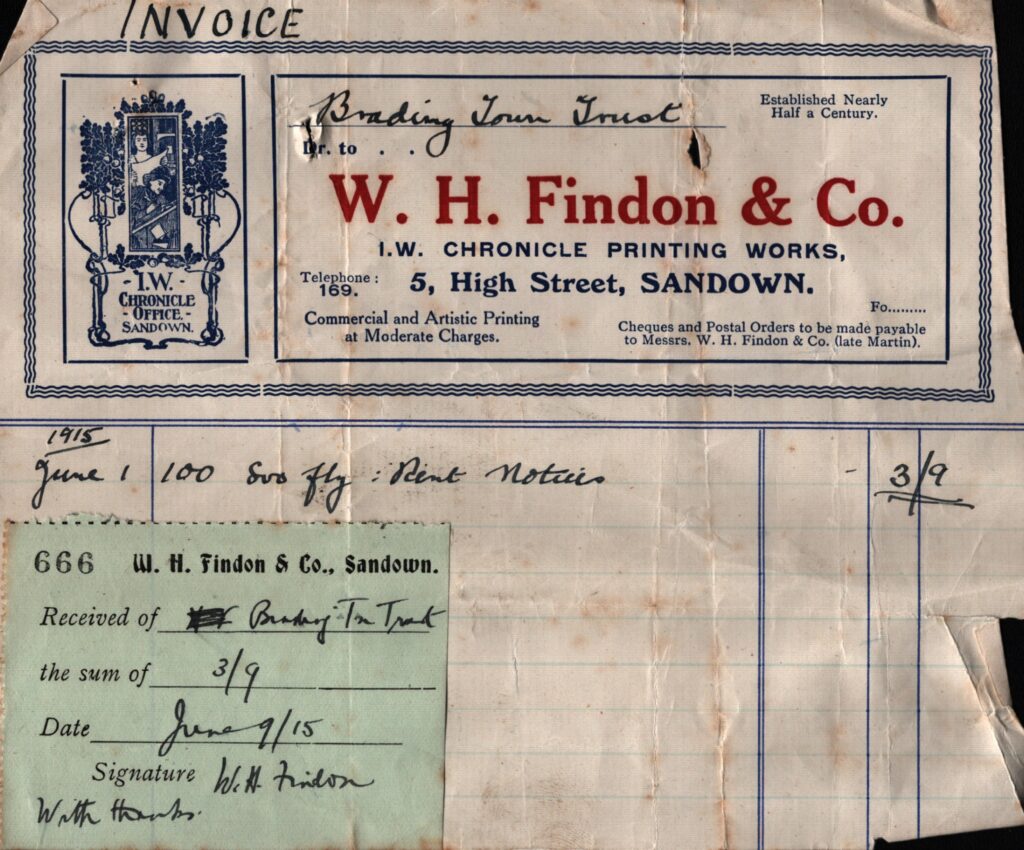 INVOICE
Brading Town Trust
Established Nearly
Half a Century.
Dr. to . . .
W. H. Findon & Co.
I.W. CHRONICLE PRINTING WORKS,
Telephone :
169.
5, High Street, SANDOWN.
Fo.........
Commercial and Artistic Printing
at Moderate Charges.
Cheques and Postal Orders to be made payable
to Messrs. W. H. Findon & Co. (late Martin).
- I.W. -
CHRONICLE
- OFFICE -
SANDOWN.
1915
June 1 100 8vo fly : Rent Notices - 3/9
666 W. H. Findon & Co., Sandown.
Received of Brading Tn Trust
the sum of 3/9
Date June 9/15
Signature W.H Findon
With thanks.